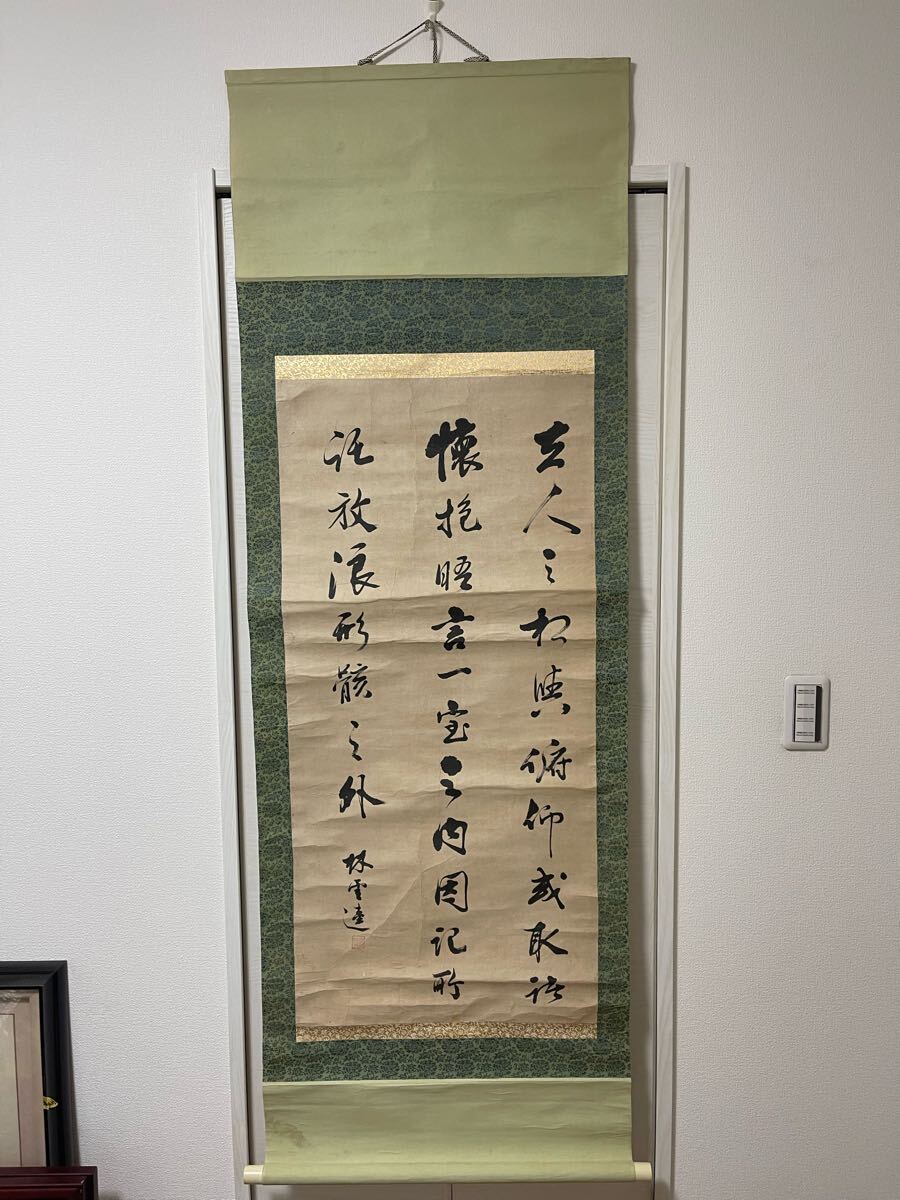 夫人之相與俯仰或取諸
懷抱晤言一室之内因記所
託放浪形骸之外
林雲逵